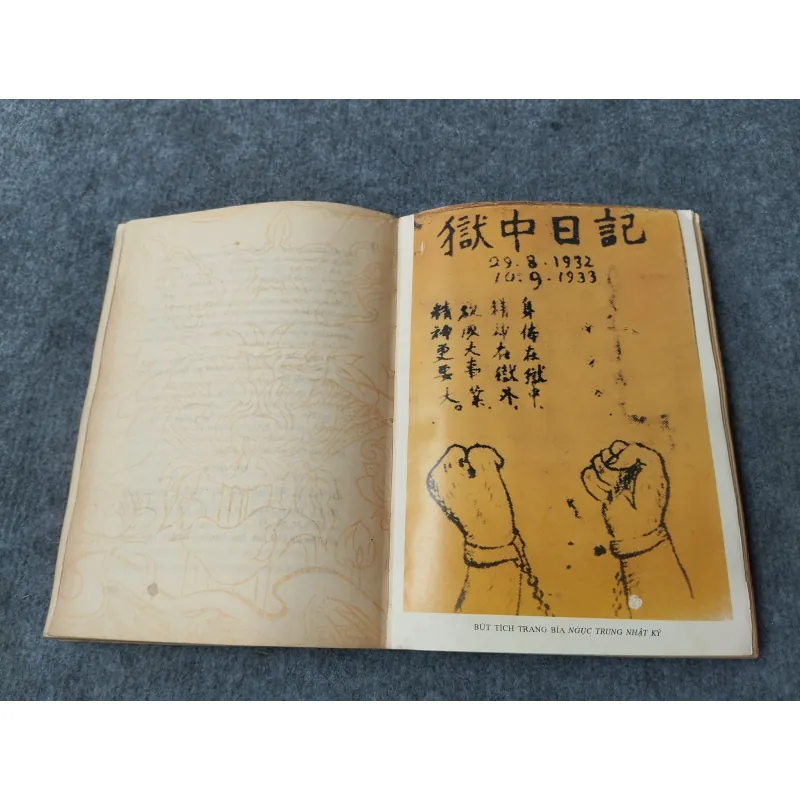 獄中日記
29.8.1932
10.9.1933
身体在獄中,
精神在獄外,
欲成大事業,
精神更要大。
BÚT TÍCH TRANG BÌA NGỤC TRUNG NHẬT KÝ